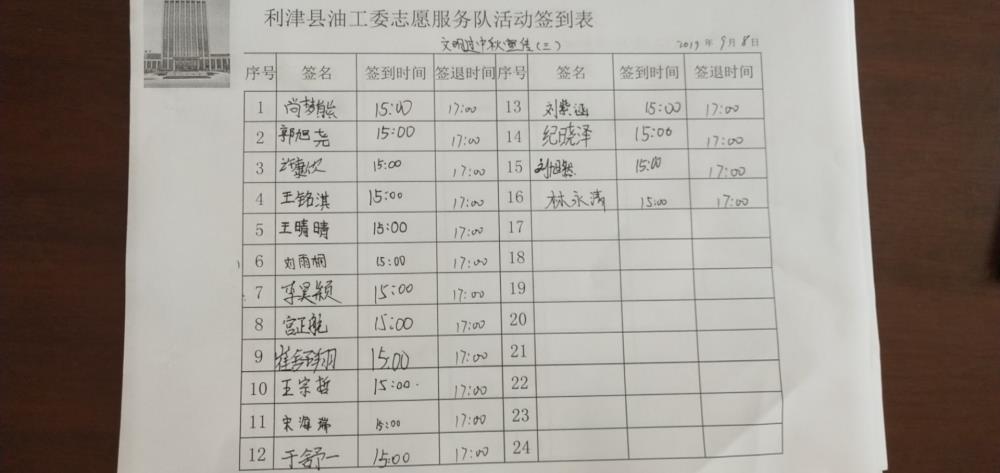 利津县油工委志愿服务队活动签到表
文明过中秋宣传(三) 2019年9月8日
序号 签名 签到时间 签退时间 序号 签名 签到时间 签退时间
1 尚梦绘 15:00 17:00 13 刘紫涵 15:00 17:00
2 郭旭尧 15:00 17:00 14 纪晓泽 15:00 17:00
3 15:00 17:00 15 15:00 17:00
4 王铭淇 15:00 17:00 16 林永清 15:00 17:00
5 王晴晴 15:00 17:00 17
6 刘雨桐 15:00 17:00 18
7 李昊颖 15:00 17:00 19
8 宫正航 15:00 17:00 20
9 崔舒翔 15:00 17:00 21
10 王宗哲 15:00 17:00 22
11 宋海瑞 15:00 17:00 23
12 于舒一 15:00 17:00 24